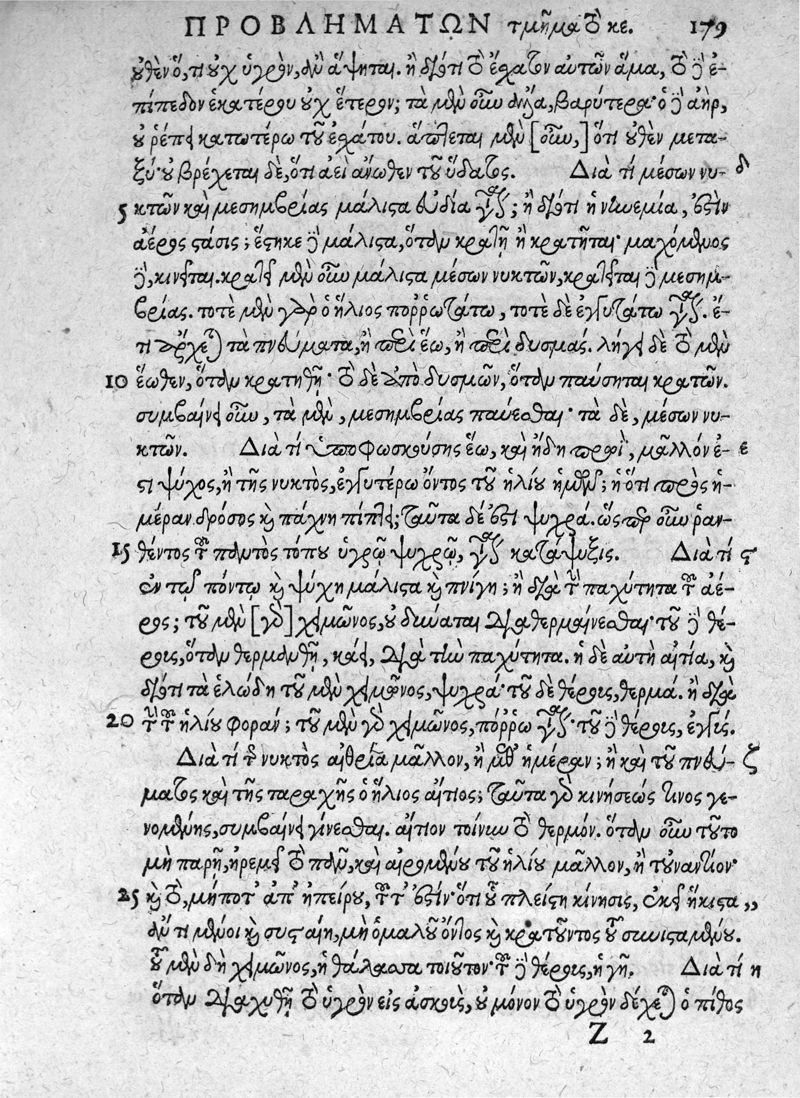 ΠΡΟΒΛΗΜΑΤΩΝ τμῆμα τὸ κε. 179
οὐθὲν ὅ, τι οὐχ ὑγρὸν, ἂν ἅψηται. ἢ διότι τὸ ἔσχατον αὐτῶν ἅμα, τὸ δ' ἐ-
πίπεδον ἑκατέρου οὐχ ἕτερον; τὰ μὲν οὖν ἄλλα, βαρύτερα· ὁ δ' ἀὴρ,
οὐ ῥέπει κατωτέρω τοῦ ἐσχάτου. ἅπτεται μὲν [οὖν,] ὅτι οὐθὲν μετα-
ξύ· οὐ βρέχεται δὲ, ὅτι ἀεὶ ἄνωθεν τοῦ ὕδατος. Διὰ τί μέσων νυ- δ
5 κτῶν καὶ μεσημβρίας μάλιστα εὐδία γίνεται; ἢ διότι ἡ νηνεμία, ἐστὶν
ἀέρος στάσις; ἕστηκε δ' μάλιστα, ὅταν κρατῇ ἢ κρατῆται· μαχόμενος
δ', κινεῖται. κρατεῖ μὲν οὖν μάλιστα μέσων νυκτῶν, κρατεῖται δ' μεσημ-
βρίας. τοτὲ μὲν γὰρ ὁ ἥλιος ποῤῥωτάτω, τοτὲ δὲ ἐγγυτάτω γίνεται. ἔ-
τι ἄρχεται τὰ πνεύματα, ἢ περὶ ἕω, ἢ περὶ δυσμάς. λήγει δὲ τὸ μὲν
10 ἕωθεν, ὅταν κρατηθῇ· τὸ δὲ ἀπὸ δυσμῶν, ὅταν παύσηται κρατῶν.
συμβαίνει οὖν, τὰ μὲν, μεσημβρίας παύεσθαι· τὰ δὲ, μέσων νυ-
κτῶν. Διὰ τί ὑποφωσκούσης ἕω, καὶ ἤδη πρωῒ, μᾶλλόν ἐ- ε
στι ψύχος, ἢ τῆς νυκτὸς, ἐγγυτέρω ὄντος τοῦ ἡλίου ἡμῶν; ἢ ὅτι πρὸς ἡ-
μέραν δρόσος καὶ πάχνη πίπτει; ταῦτα δέ ἐστι ψυχρά. ὥσπερ οὖν ῥαν-
15 θέντος τοῦ παντὸς τόπου ὑγρῷ ψυχρῷ, γίνεται κατάψυξις. Διὰ τί ϛ
ἐν τῷ πόντῳ καὶ ψύχη μάλιστα καὶ πνίγη; ἢ διὰ τὴν παχύτητα τοῦ ἀέ-
ρος; τοῦ μὲν [γὰρ] χειμῶνος, οὐ δύναται διαθερμαίνεσθαι· τοῦ δ' θέ-
ρους, ὅταν θερμανθῇ, καίει, διὰ τὴν παχύτητα. ἡ δὲ αὐτὴ αἰτία, καὶ
διότι τὰ ἑλώδη τοῦ μὲν χειμῶνος, ψυχρά· τοῦ δὲ θέρους, θερμά. ἢ διὰ
20 τὴν τοῦ ἡλίου φοράν; τοῦ μὲν γὰρ χειμῶνος, πόῤῥω γίνεται· τοῦ δ' θέρους, ἐγγύς.
Διὰ τί τῆς νυκτὸς αἰθρία μᾶλλον, ἢ μεθ' ἡμέραν; ἢ καὶ τοῦ πνεύ- ζ
ματος καὶ τῆς ταραχῆς ὁ ἥλιος αἴτιος; ταῦτα γὰρ κινήσεώς τινος γε-
νομένης, συμβαίνει γίνεσθαι. αἴτιον τοίνυν τὸ θερμόν. ὅταν οὖν τοῦτο
μὴ παρῇ, ἠρεμεῖ τὸ πᾶν, καὶ αἰρομένου τοῦ ἡλίου μᾶλλον, ἢ τοὐναντίον·
25 καὶ τὸ, μήποτ' ἀπ' ἠπείρου, τοῦτ' ἐστὶν· ὅτι οὗ πλείστη κίνησις, ἐκεῖ ἥκιστα „
ἄν τι μένοι καὶ συσταίη, μὴ ὁμαλοῦ ὄντος καὶ κρατοῦντος τοῦ συνισταμένου.
τοῦ μὲν δὴ χειμῶνος, ἡ θάλασσα τοιοῦτον· τοῦ δ' θέρους, ἡ γῆ. Διὰ τί η
ὅταν διαχυθῇ τὸ ὑγρὸν εἰς ἀσκοὺς, οὐ μόνον τὸ ὑγρὸν δέχεται ὁ πίθος
Z 2